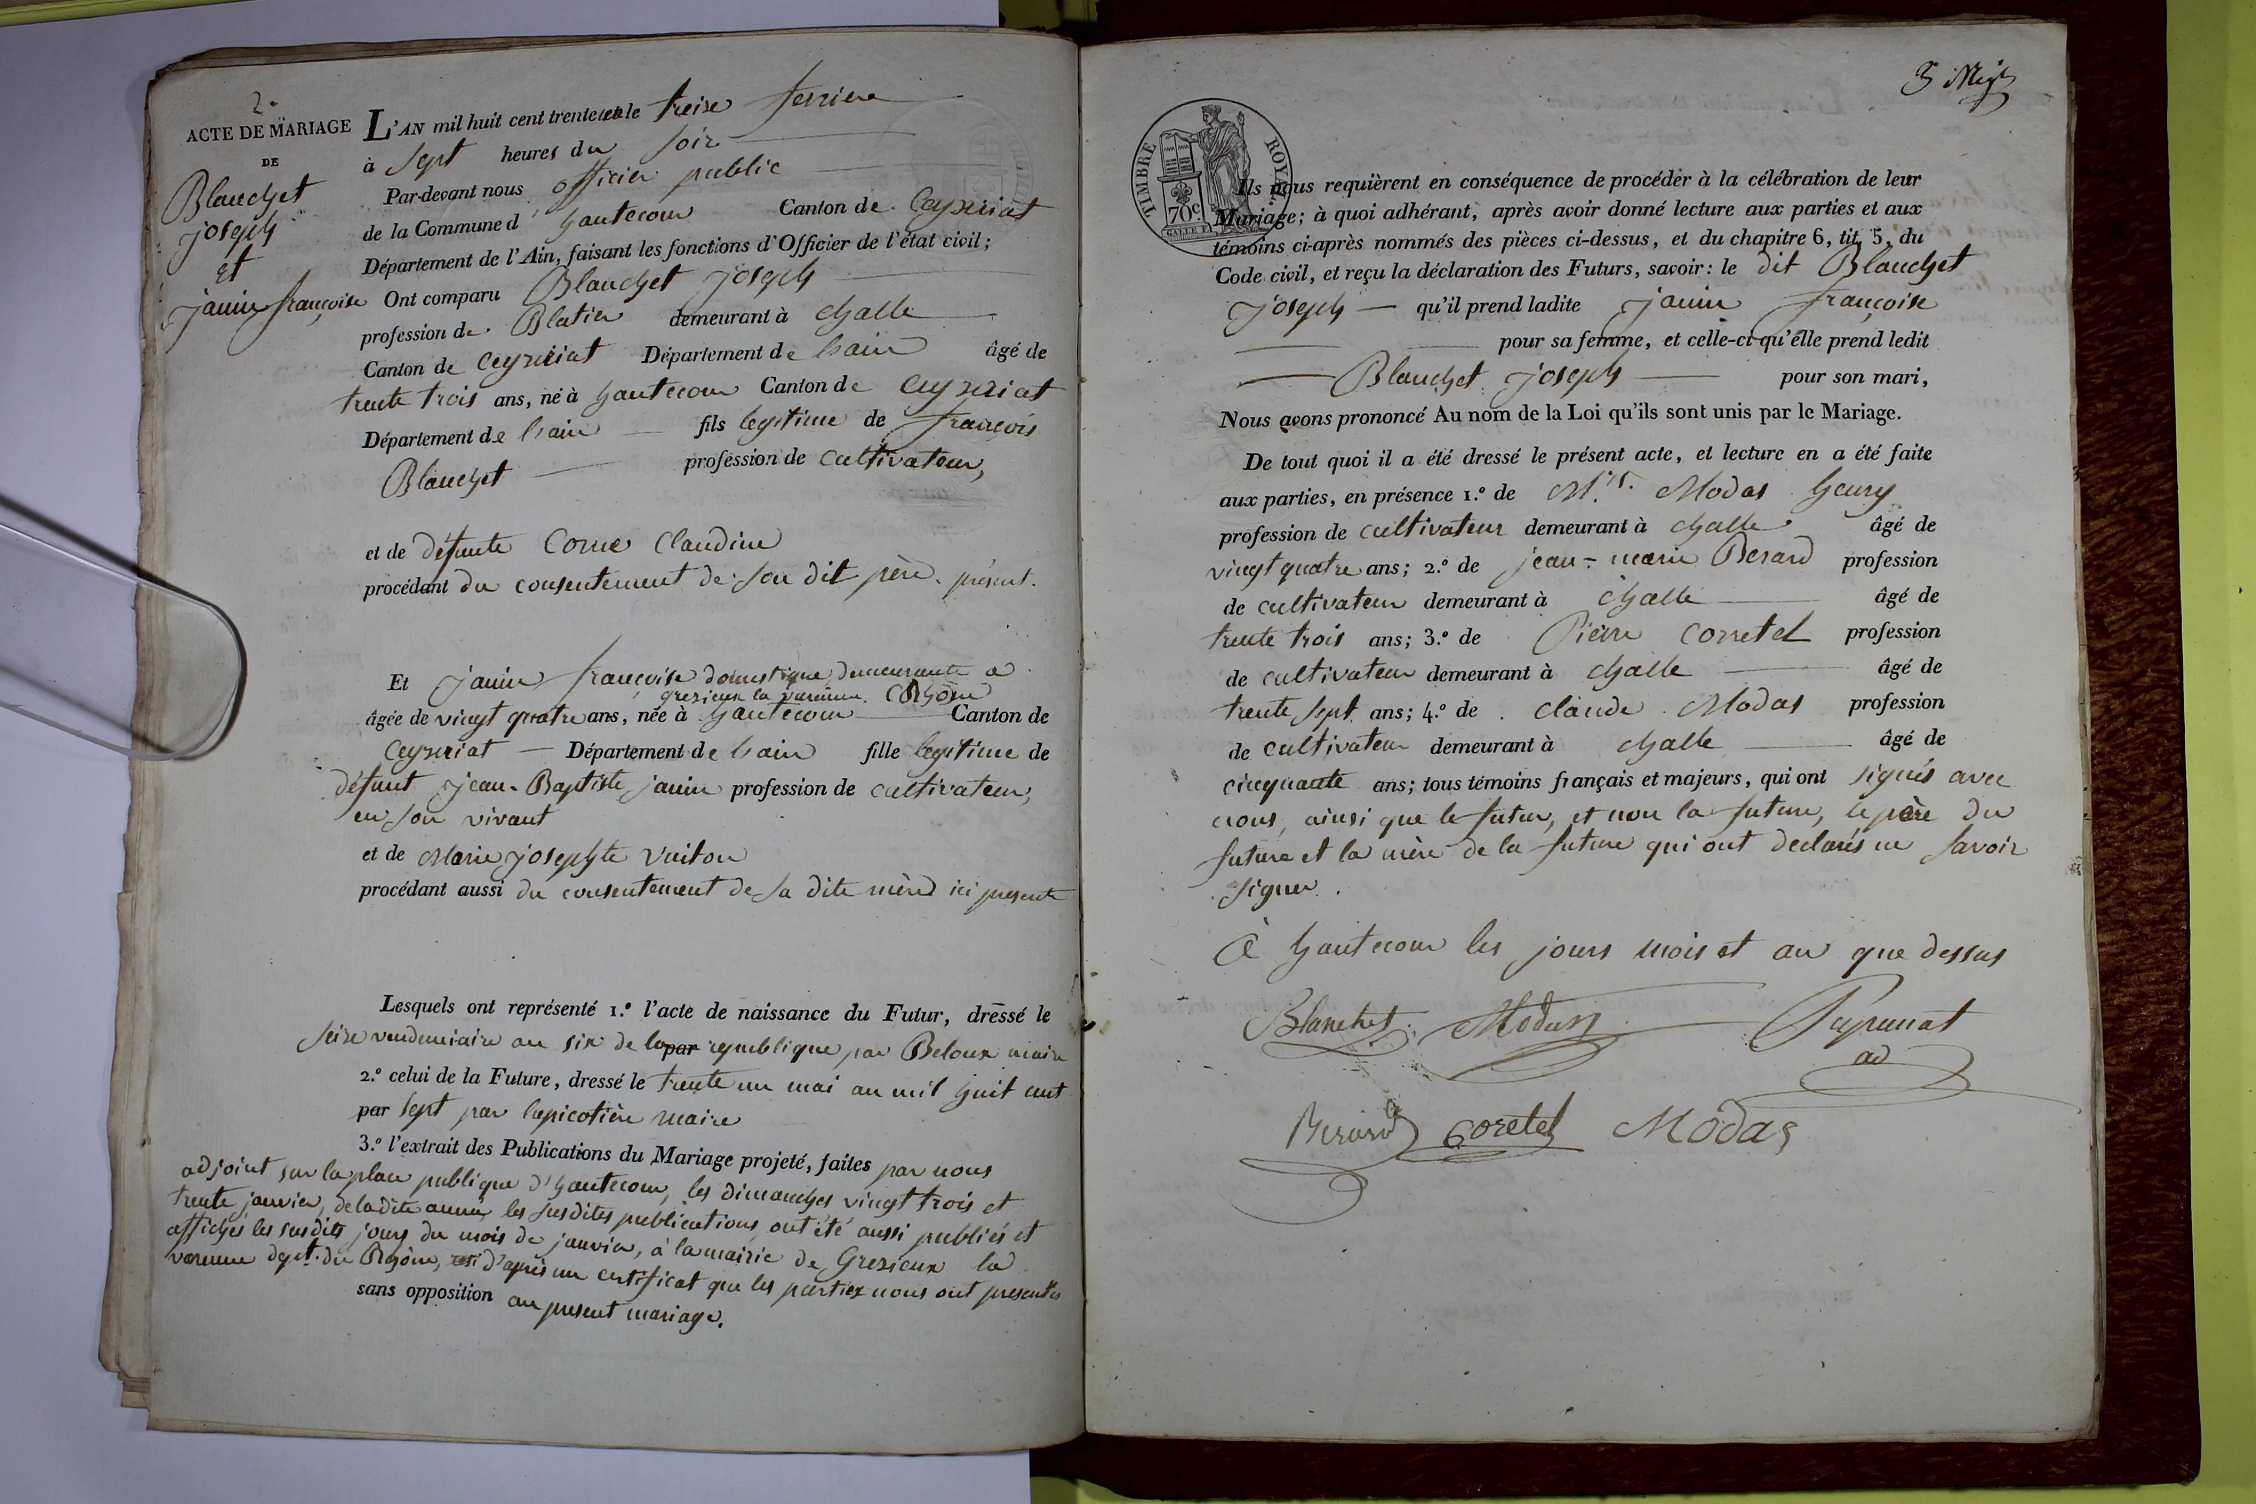 2.e
ACTE DE MARIAGE
DE
Blanchet
joseph
et
janin françoise
L'AN mil huit cent trente et le treize fevrier
à sept heures du soir
Par-devant nous officier public
de la Commune d' hautecour Canton de Ceyzeriat
Département de l'Ain, faisant les fonctions d'Officier de l'état civil;
Ont comparu Blanchet joseph
profession de Blatier demeurant à challe
Canton de ceyzeriat Département de lain âgé de
trente trois ans, né à hautecour Canton de ceyzeriat
Département de lain fils legitime de françois
Blanchet profession de cultivateur,
et de défunte Corne Claudine
procédant du consentement de son dit père présent.
Et janin françoise domestique demeurante a
grezieux la varenne Rhône
âgée de vingt quatre ans, née à hautecour Canton de
Ceyzeriat Département de lain fille legitime de
défunt jean-Baptiste janin profession de cultivateur,
en son vivant
et de Marie josephte Vuiton
procédant aussi du consentement de sa dite mère ici presente
Lesquels ont représenté 1.º l'acte de naissance du Futur, dressé le
seize vendemiaire an six de la par republique par Beloux maire
2.º celui de la Future, dressé le trente un mai an mil huit cent
par sept par lapicotière maire
3.º l'extrait des Publications du Mariage projeté, faites par nous
adjoint sur la place publique d'hautecour, les dimanches vingt trois et
trente janvier, de la dite année les susdites publications ont été aussi publiés et
affichés les susdits jours du mois de janvier, à la mairie de Grezieux la
varenne dept. du Rhône, d'après un certificat que les parties nous ont presentés
sans opposition au present mariage.
3 Mge
TIMBRE ROYAL
70 c
Ils nous requièrent en conséquence de procéder à la célébration de leur
Mariage; à quoi adhérant, après avoir donné lecture aux parties et aux
témoins ci-après nommés des pièces ci-dessus, et du chapitre 6, tit. 5, du
Code civil, et reçu la déclaration des Futurs, savoir: le dit Blanchet
joseph qu'il prend ladite janin françoise
pour sa femme, et celle-ci qu'elle prend ledit
Blanchet joseph pour son mari,
Nous avons prononcé Au nom de la Loi qu'ils sont unis par le Mariage.
De tout quoi il a été dressé le présent acte, et lecture en a été faite
aux parties, en présence 1.º de M.rs. Modas henry
profession de cultivateur demeurant à challe âgé de
vingt quatre ans; 2.º de jean-marie Berard profession
de cultivateur demeurant à challe âgé de
trente trois ans; 3.º de Pierre corretel profession
de cultivateur demeurant à challe âgé de
trente sept ans; 4.º de claude Modas profession
de cultivateur demeurant à challe âgé de
cinquante ans; tous témoins français et majeurs, qui ont signés avec
nous, ainsi que le futur, et non la future, le père du
future et la mère de la future qui ont declarés ne savoir
signer.
à hautecour les jours mois et an que dessus
Blanchet Modas Papunat
ad
Berard Coretel Modas